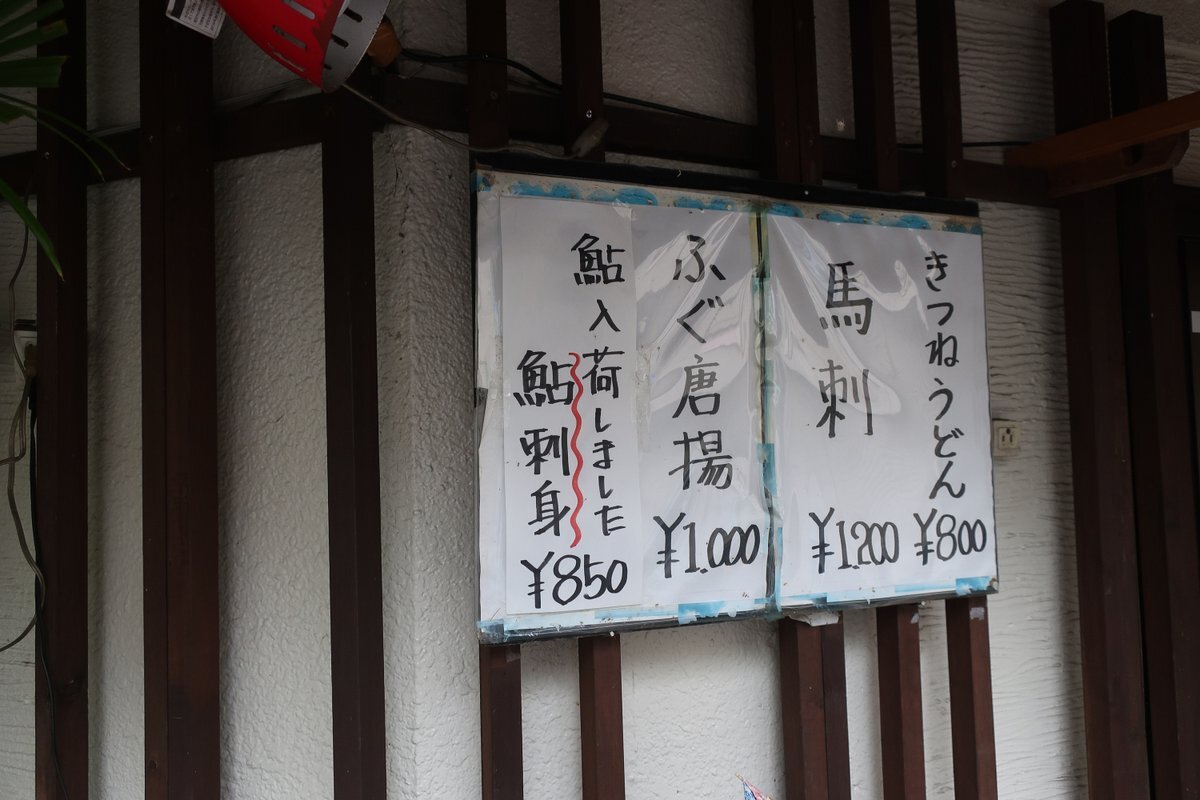 きつねうどん
¥800
馬刺
¥1.200
ふぐ唐揚
¥1.000
鮎入荷しました
鮎刺身
¥850